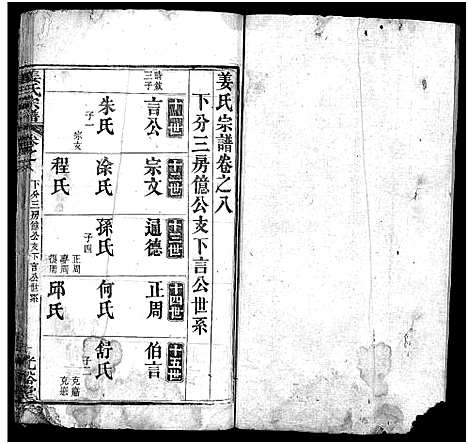 姜氏宗譜卷之八
下分三房億公支下言公世系
十一世
言公
詩敍
三子
朱氏
子一
宗文
十二世
宗文
涂氏
程氏
十三世
逼德
孫氏
子四
正周
十四世
正周
何氏
邱氏
十五世
伯言
舒氏
子二
克嘉
姜氏宗譜
卷之八
下分三房億公支下言公世系
光裕堂